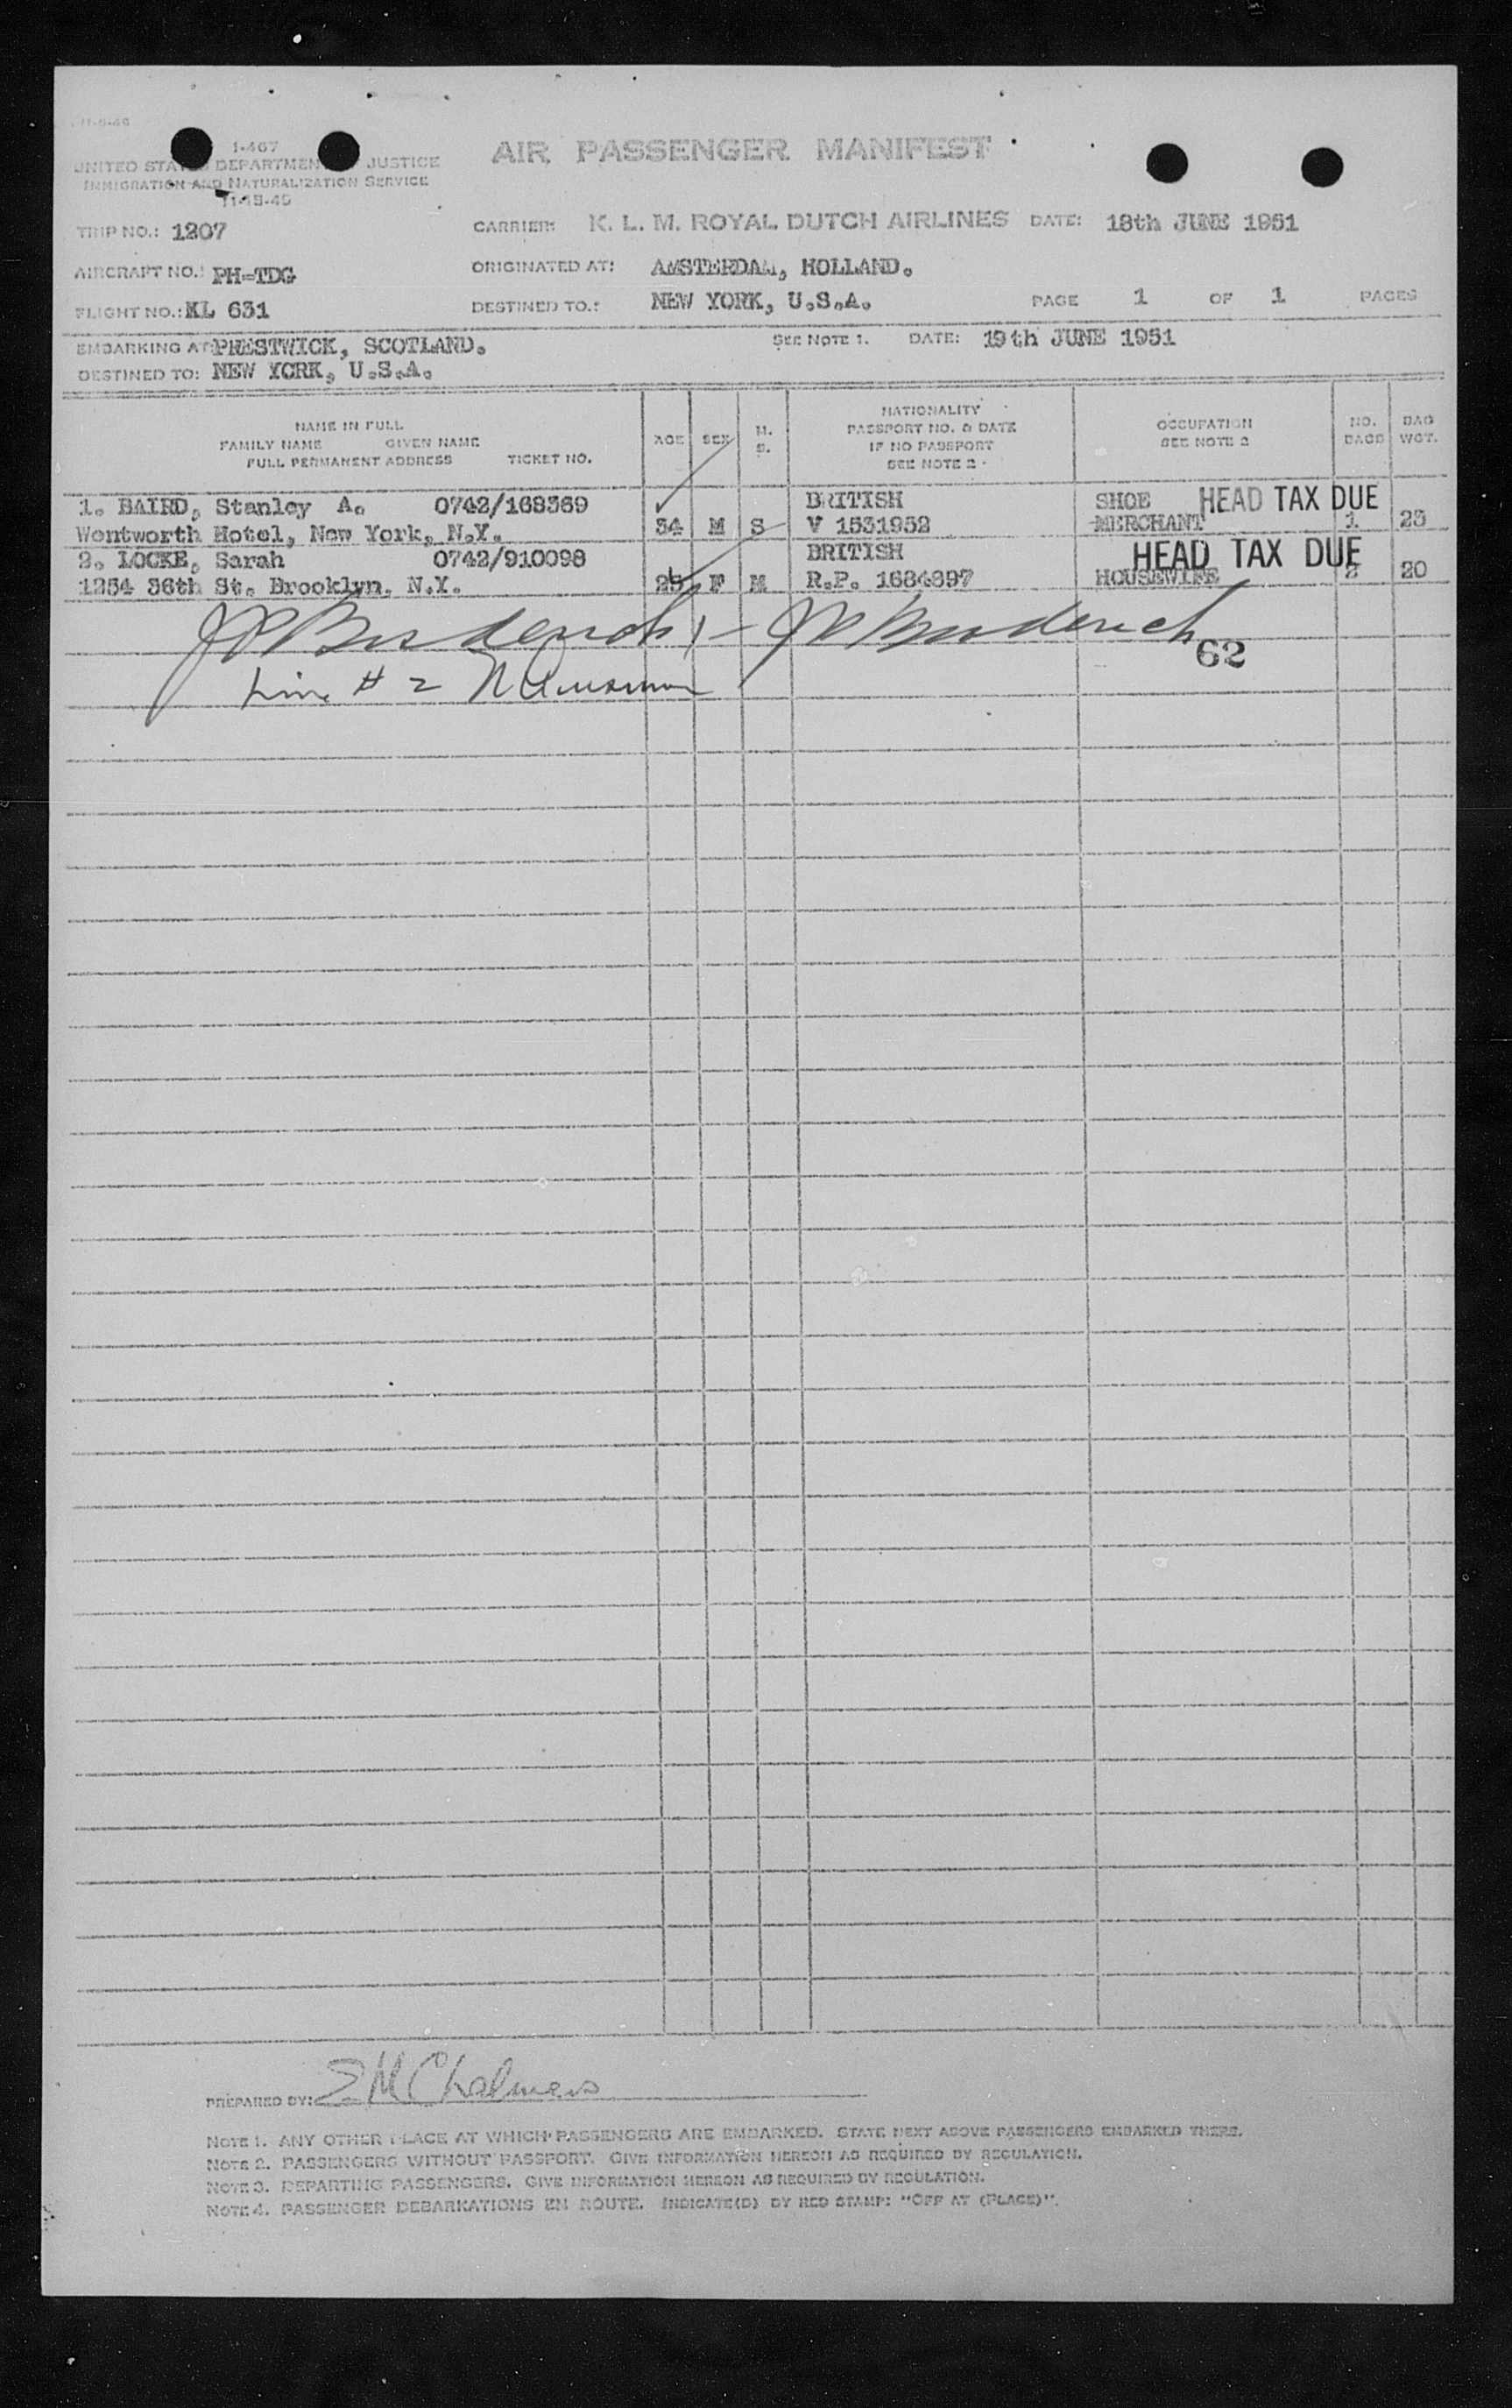 11-8-49
I-467
UNITED STATES DEPARTMENT JUSTICE
IMMIGRATION AND NATURALIZATION SERVICE
11-15-45
AIR PASSENGER MANIFEST
TRIP NO.: 1207
CARRIER: K. L. M. ROYAL DUTCH AIRLINES DATE: 18th JUNE 1951
AIRCRAFT NO.: PH-TDG
ORIGINATED AT: AMSTERDAM, HOLLAND.
FLIGHT NO.: KL 631
DESTINED TO.: NEW YORK, U.S.A.
PAGE 1 OF 1 PAGES
EMBARKING AT PRESTWICK, SCOTLAND. SEE NOTE 1. DATE: 19th JUNE 1951
DESTINED TO: NEW YORK, U.S.A.
NAME IN FULL
FAMILY NAME GIVEN NAME
FULL PERMANENT ADDRESS TICKET NO.
AGE SEX
M.
S.
NATIONALITY
PASSPORT NO. & DATE
IF NO PASSPORT
SEE NOTE 2
OCCUPATION
SEE NOTE 2
NO.
BAGS
BAG
WGT.
1. BAIRD, Stanley A. 0742/168369 BRITISH SHOE HEAD TAX DUE
Wentworth Hotel, New York, N.Y. 34 M S V 1531952 MERCHANT 1 23
2. LOCKE, Sarah 0742/910098 BRITISH HEAD TAX DUE
1254 36th St. Brooklyn, N.Y. 25 F M R.P. 1684897 HOUSEWIFE 2 20
62
Line # 2
PREPARED BY: E M Chalmers
NOTE 1. ANY OTHER PLACE AT WHICH PASSENGERS ARE EMBARKED. STATE NEXT ABOVE PASSENGERS EMBARKED THERE.
NOTE 2. PASSENGERS WITHOUT PASSPORT. GIVE INFORMATION HEREON AS REQUIRED BY REGULATION.
NOTE 3. DEPARTING PASSENGERS. GIVE INFORMATION HEREON AS REQUIRED BY REGULATION.
NOTE 4. PASSENGER DEBARKATIONS EN ROUTE. INDICATE(D) BY RED STAMP: "OFF AT (PLACE)".